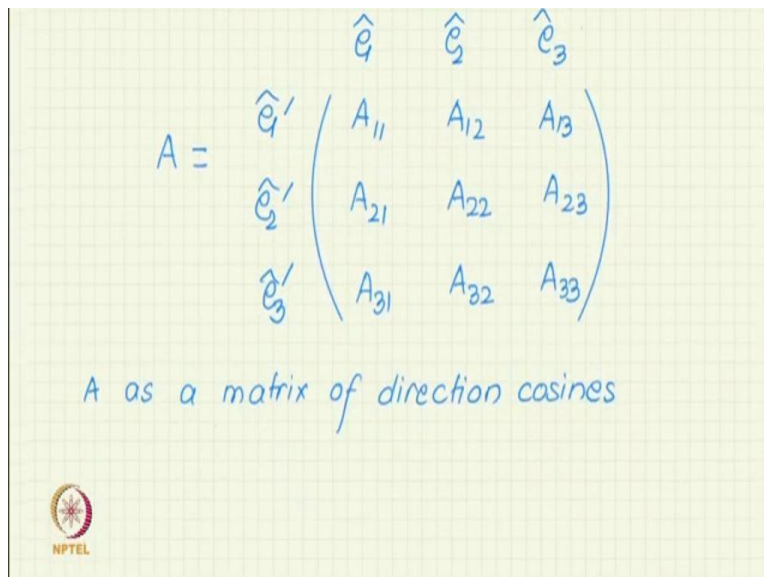 ê₁ ê₂ ê₃
A = ê₁′ ( A₁₁ A₁₂ A₁₃
ê₂′ A₂₁ A₂₂ A₂₃
ê₃′ A₃₁ A₃₂ A₃₃ )
A as a matrix of direction cosines
NPTEL